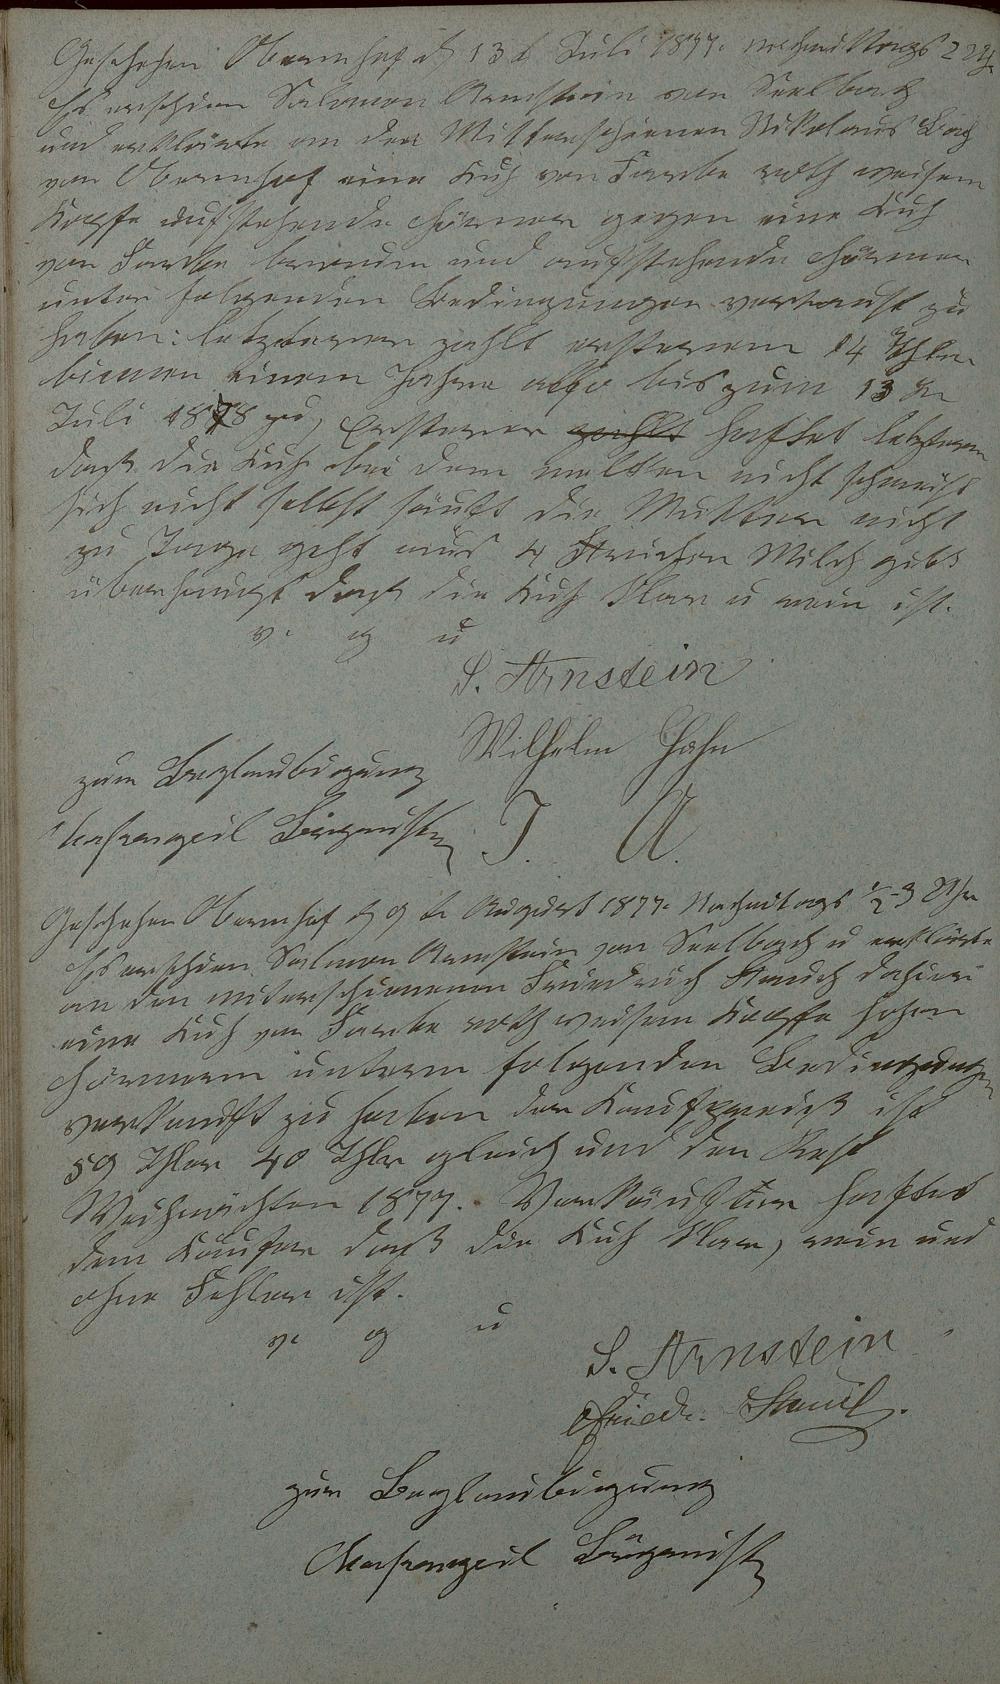 Geschehen Obernhof d 13 t Juli 1877. nachmittags 2 Uhr
Es erschien Salomon Arnstein von Seelbach
und erklärte an den Miterschienenen Nikolaus Bach
von Obernhof eine Kuh von Farbe roth weisem
Kopfe aufstehende Hörner gegen eine Kuh
von Farbe braun und aufstehende Hörner
unter folgenden Bedingungen vertauscht zu
haben: letzterer zahlt ersterem 14 Thlr.
binnen einem Jahre also bis zum 13 ten
Juli 1878 zu, Ersterer zahlt haftet letzterem
daß die Kuh bei dem melken nicht schmeißt
sich nicht selbst säuft die Mutter nicht
zu Tage geht aus 4 Strichen Milch gibt
überhaupt daß die Kuh klar u rein ist.
v. g u
S. Arnstein
Wilhelm Hahn
zum Beglaubigung
Bürgermstr
J. A.
Geschehen Obernhof d 9 te August 1877. Nachmitags ½ 3 Uhr
Es erschien Salmon Arnstein von Seelbach u erklärte
an den miterschienenen Friedrich Stauch dahier
eine Kuh von Farbe roth weisem Kopfe hohen
Hörnern unterm folgenden Bedingungen
verkauft zu haben der Kaufpreiß ist
59 Thlr 40 Thlr gleich und den Rest
Weihnachten 1877. Verkäufer haftet
dem Käufer daß die Kuh klar, rein und
ohne Fehler ist.
v. g u
S. Arnstein
Friedr. Stauch.
zur Beglaubigung
Bürgermstr